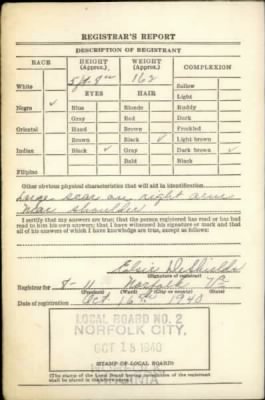 REGISTRAR'S REPORT
DESCRIPTION OF REGISTRANT
RACE HEIGHT (Approx.) WEIGHT (Approx.) COMPLEXION
White 5 ft. 8 in 162 Sallow
EYES HAIR Light
Negro ✓ Blue Blonde Ruddy
Gray Red Dark
Oriental Hazel Brown Freckled
Brown Black ✓ Light brown
Indian Black ✓ Gray Dark brown ✓
Bald Black
Filipino
Other obvious physical characteristics that will aid in identification
Large scar on right arm
near shoulder
I certify that my answers are true; that the person registered has read or has had
read to him his own answers; that I have witnessed his signature or mark and that
all of his answers of which I have knowledge are true, except as follows:
DeShields
(Signature of registrar)
Registrar for 8-11 Norfolk Va
(Precinct) (Ward) (City or county) (State)
Date of registration Oct. 16th 1940
LOCAL BOARD NO. 2
NORFOLK CITY,
OCT 18 1940
NORFOLK
VIRGINIA
(STAMP OF LOCAL BOARD)
(The stamp of the Local Board having jurisdiction of the registrant
shall be placed in the above space)